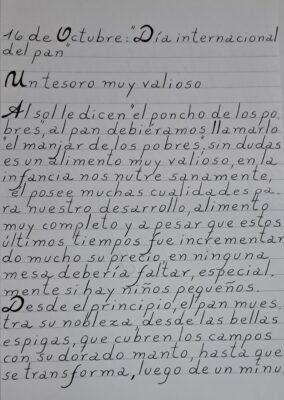 16 de Octubre: "Día internacional
del pan"
Un tesoro muy valioso
Al sol le dicen "el poncho de los po
bres, al pan debiéramos llamarlo
"el manjar de los pobres", sin dudas
es un alimento muy valioso, en la
infancia nos nutre sanamente,
él posee muchas cualidades pa-
ra nuestro desarrollo, alimento
muy completo y a pesar que estos
últimos tiempos fue incrementan
do mucho su precio, en ninguna
mesa debería faltar, especial.
mente si hay niños pequeños.
Desde el principio, el pan mues_
tra su nobleza, desde las bellas
espigas, que cubren los campos
con su dorado manto, hasta que
se transforma, luego de un minu